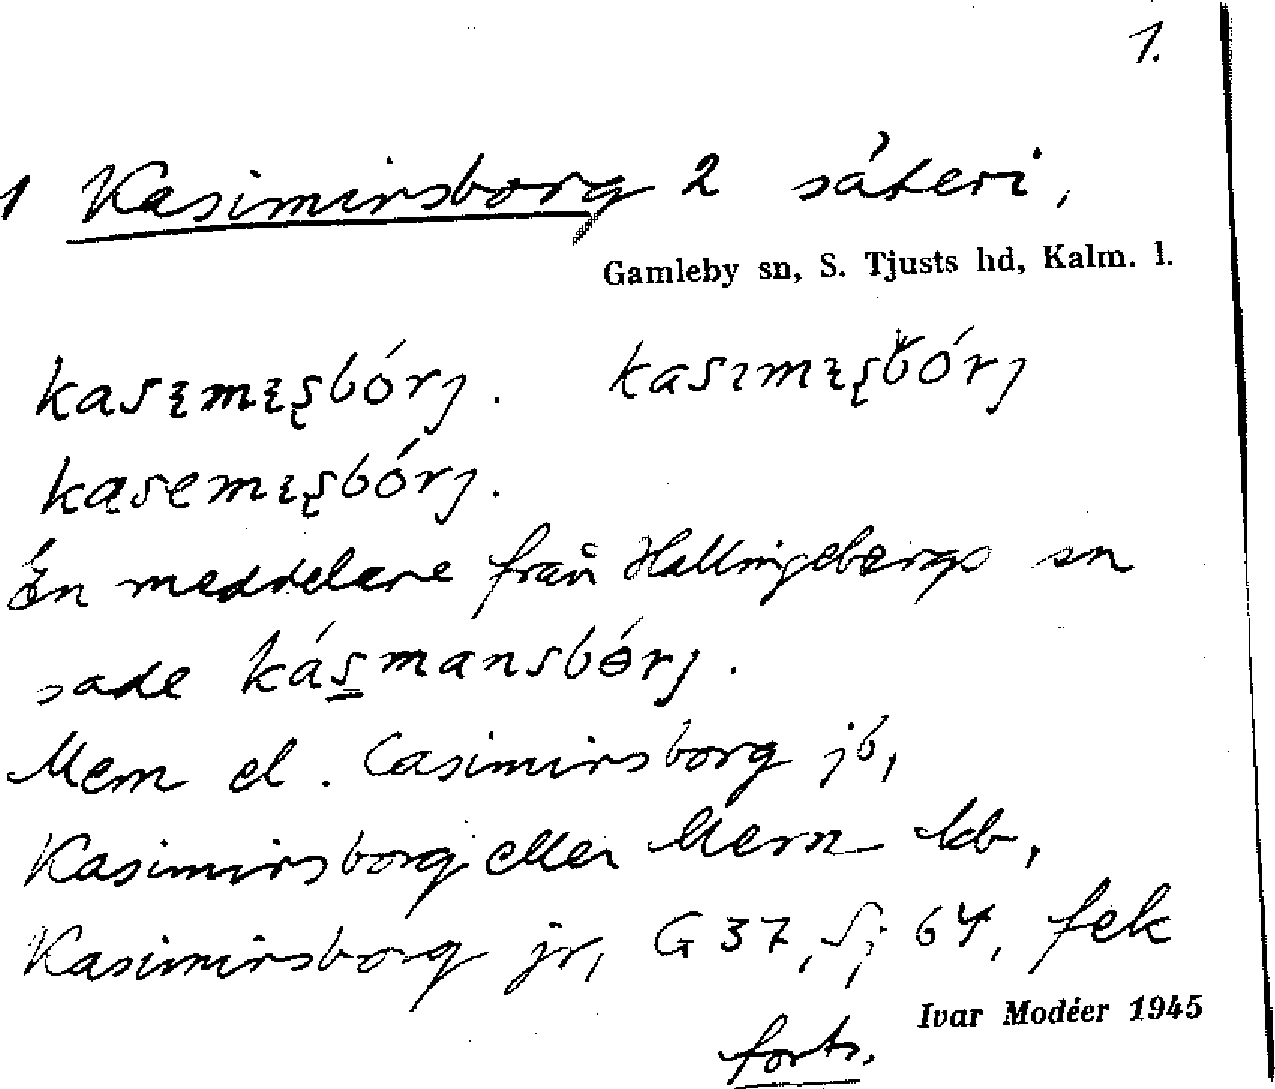 1.
1 Kasimirsborg 2 säteri,
Gamleby sn, S. Tjusts hd, Kalm. l.
kasįmįşbórj. kasımįşbórj
kasemįşbórj.
En meddelare från Hallingebergs sn
sade káşmansbórj.
Mem el. Casimirsborg jb,
Kasimirsborg eller Mem ldb,
Kasimirsborg jr, G 37, Sj 64, fek
Ivar Modéer 1945
forts.